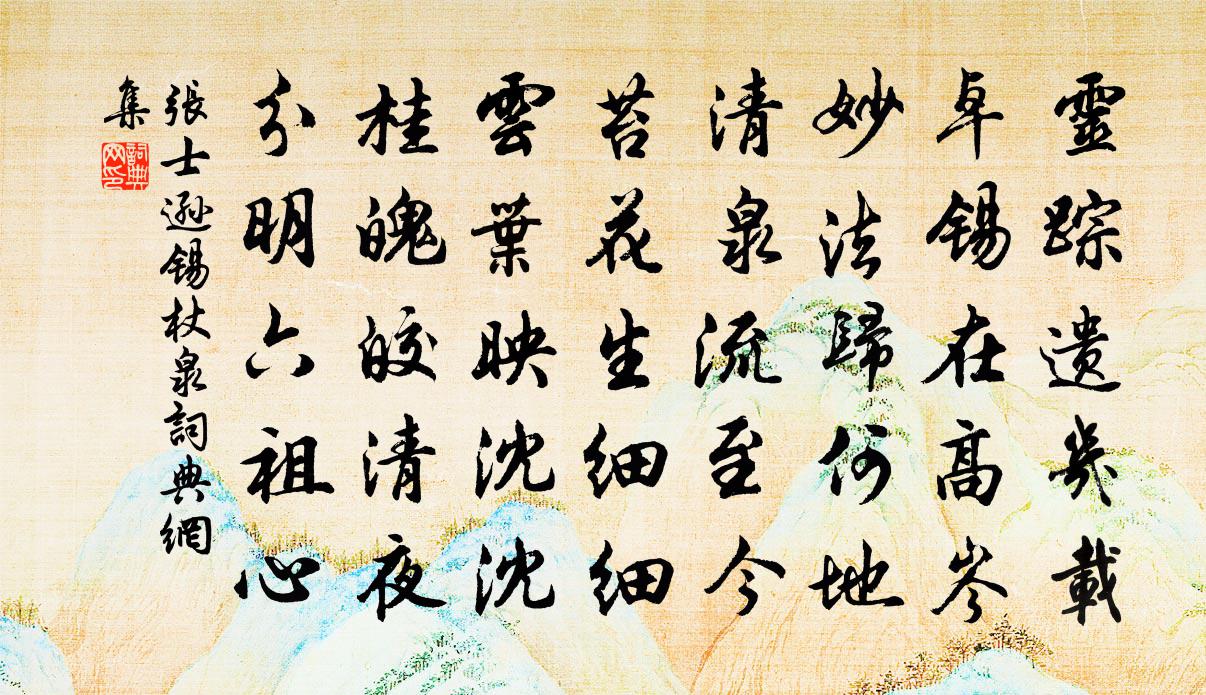 靈踪遺幾載
卓錫在高岑
妙法歸何地
清泉流至今
苔花生細細
雲葉映沈沈
桂魄皎清夜
分明六祖心
張士遜錫杖泉詞典網
集
詞典
网印